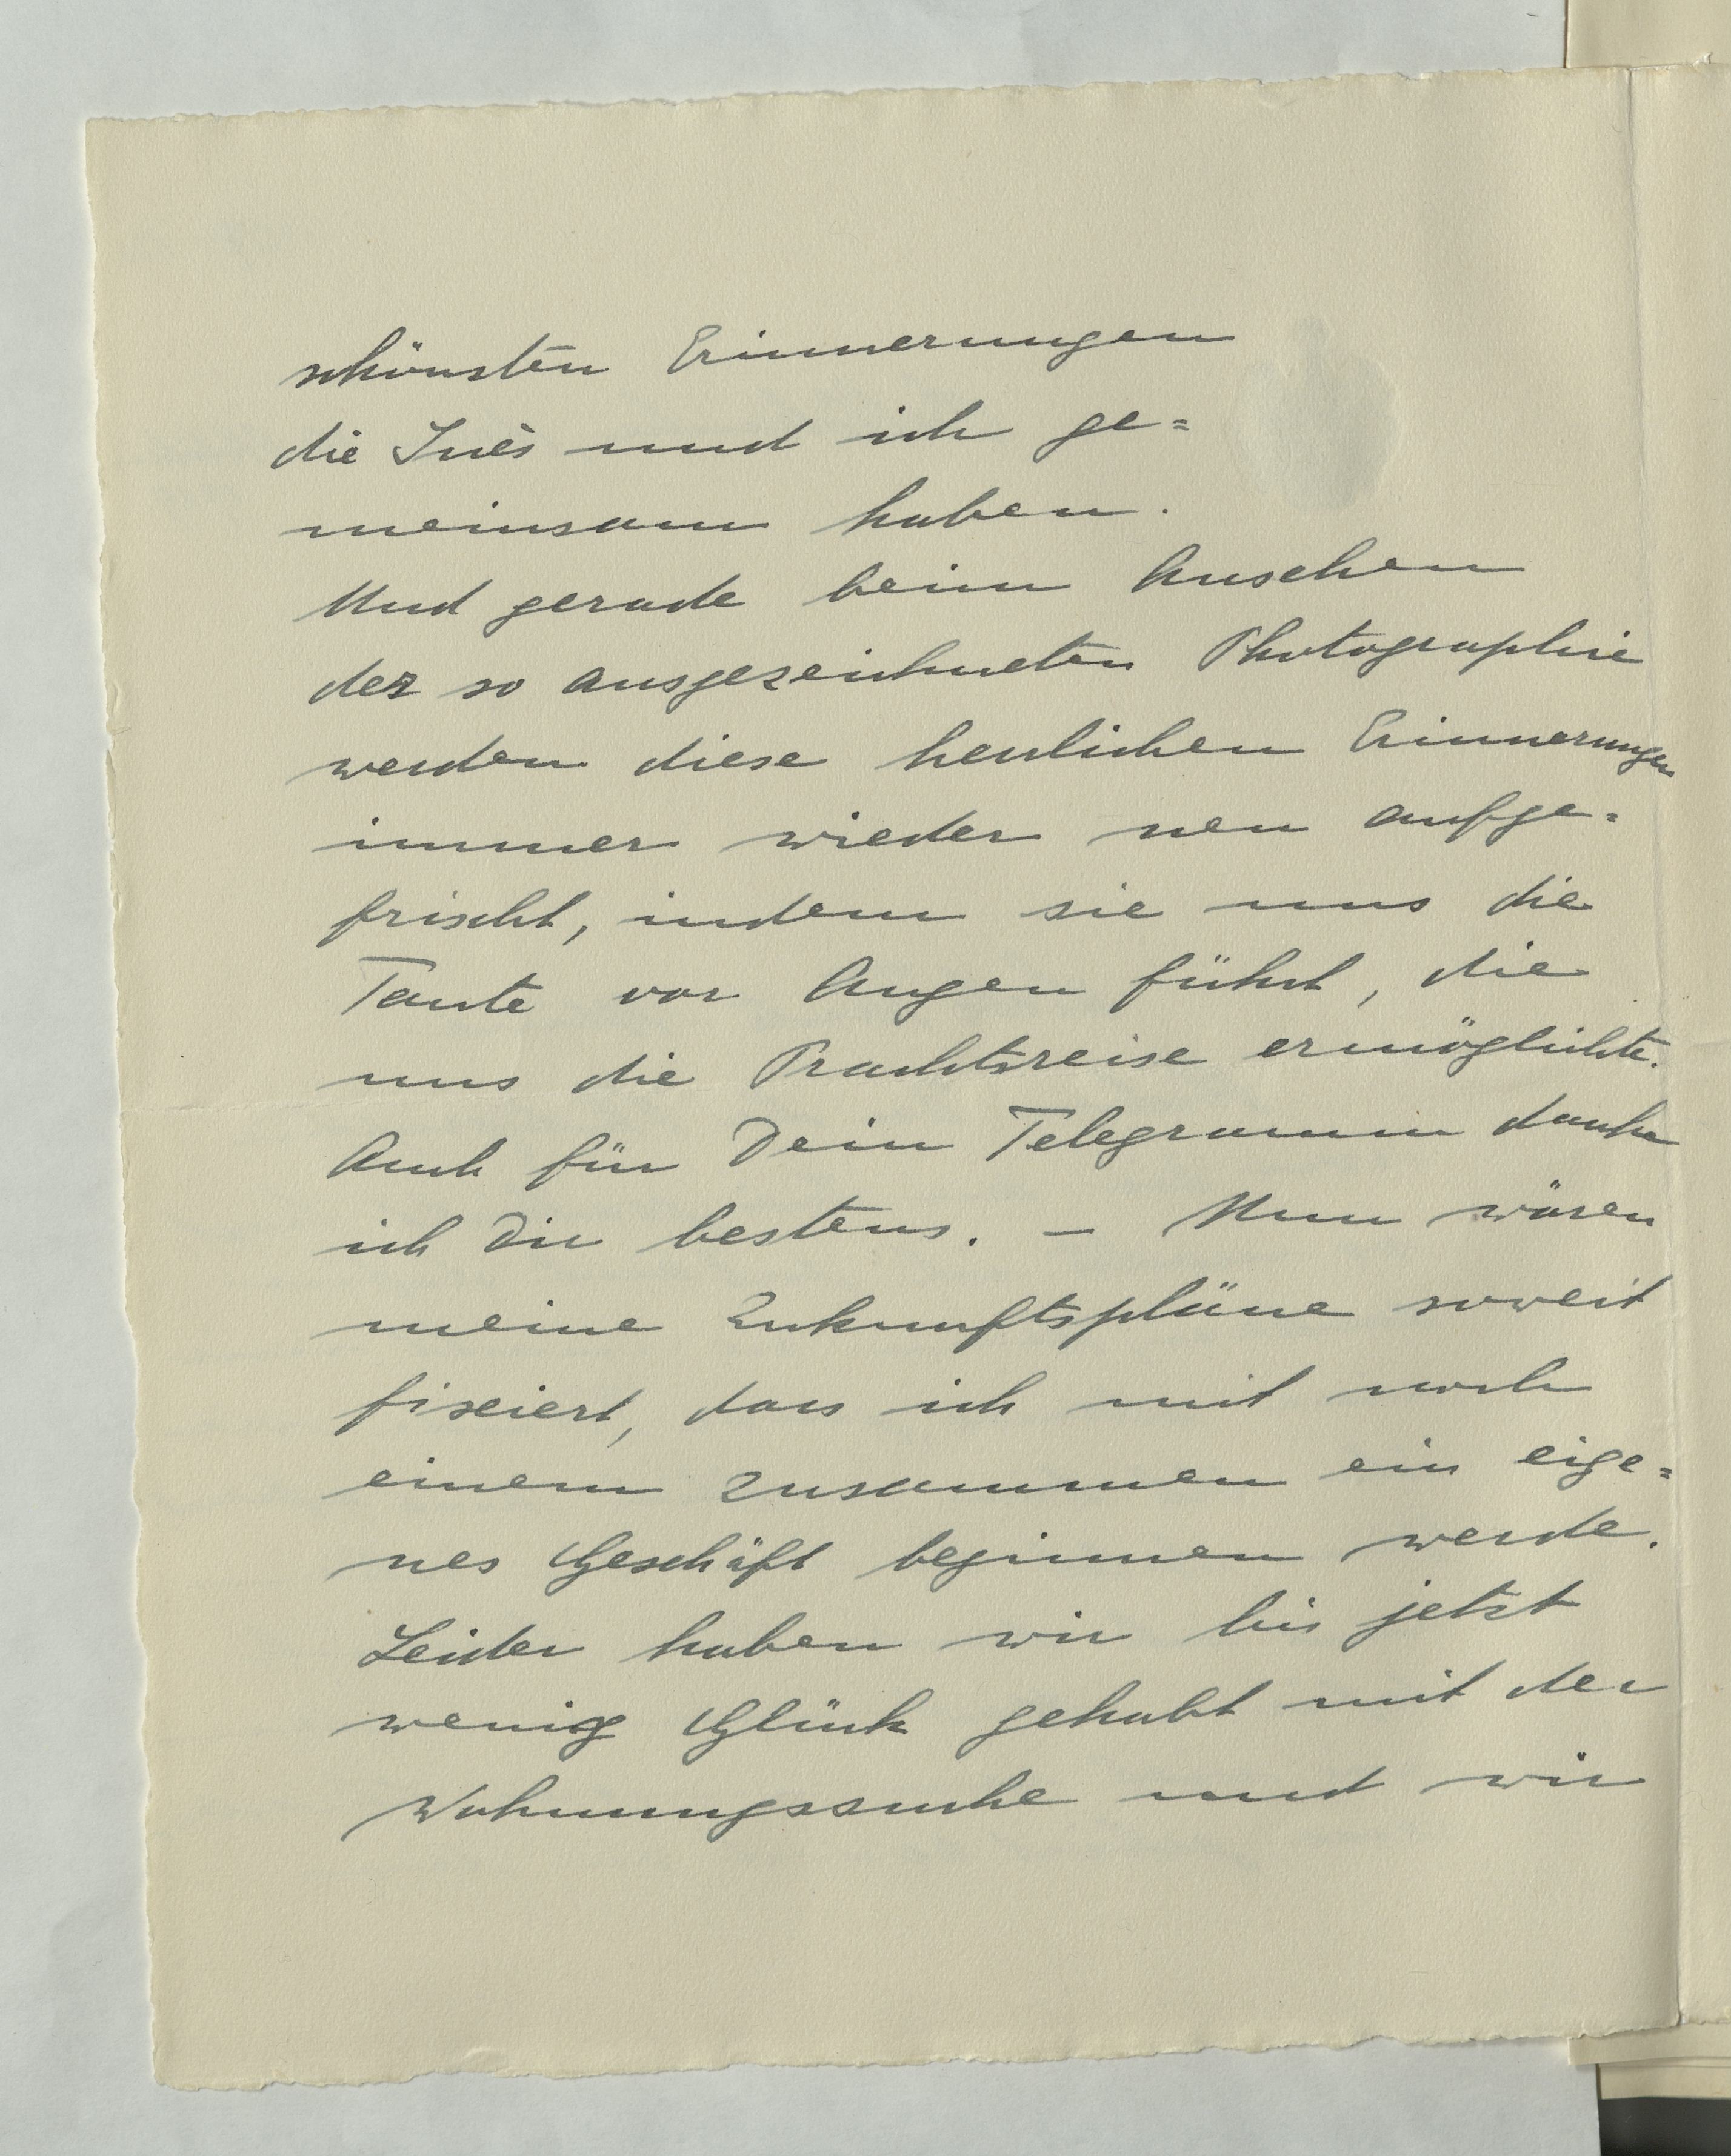 schönsten Erinnerungen
die Inès und ich ge=
meinsam haben.
Und gerade beim Ansehen
der so ausgezeichneten Photographie
werden diese herrlichen Erinnerungen
immer wieder neu aufge=
frischt, indem sie uns die
Tante vor Augen führt, die
uns die Prachtsreise ermöglichte.
Auch für Dein Telegramm danke
ich Dir bestens. – Nun wären
meine Zukunftspläne soweit
fixiert, dass ich mit noch
einem zusammen ein eige=
nes Geschäft beginnen werde.
Leider haben wir bis jetzt
wenig Glück gehabt mit der
Wohnungssuche und wir